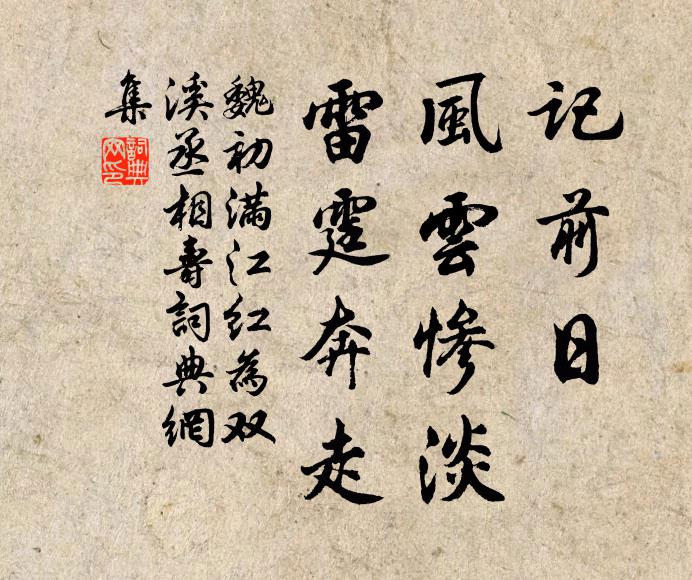 記前日
風雲慘淡
雷霆奔走
魏初满江红為双
溪丞相壽詞典網
集
詞典
网印